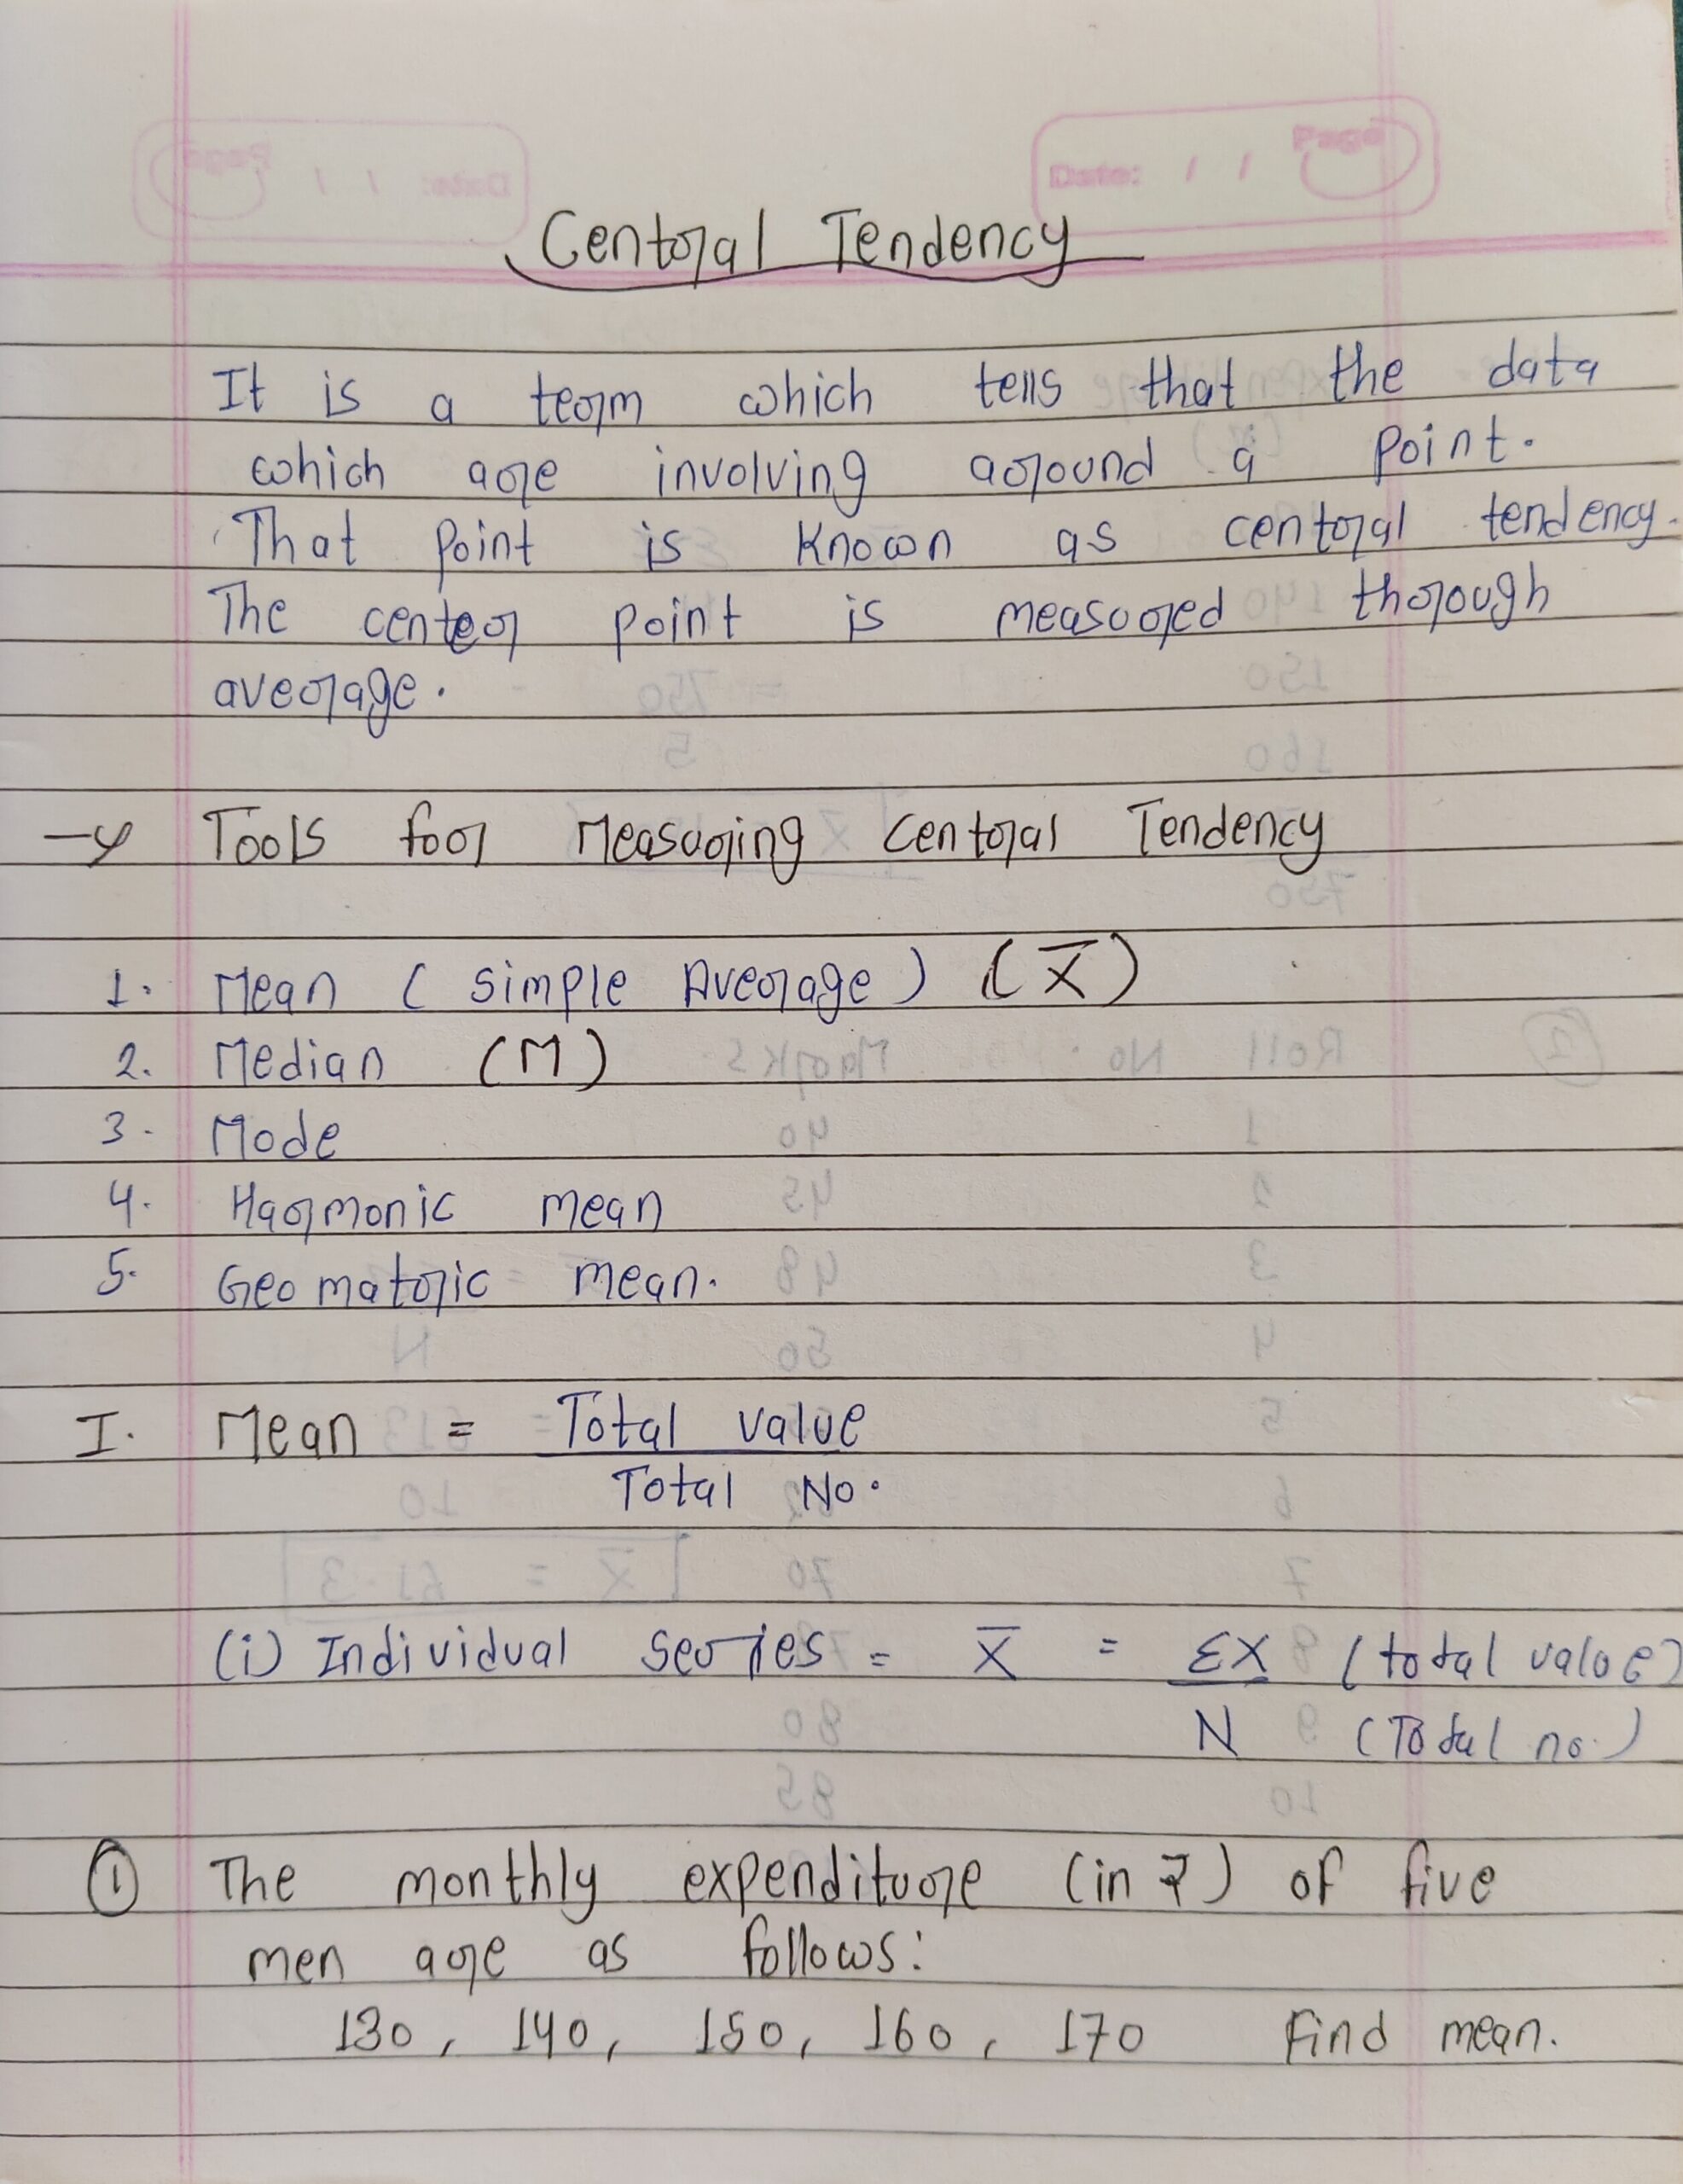 Date: / / Page
Central Tendency
It is a term which tells that the data
which are involving around a point.
That point is known as central tendency.
The center point is measured through
average.
Tools for Measuring Central Tendency
1. Mean (Simple Average) (X̄)
2. Median (M)
3. Mode
4. Harmonic mean
5. Geomatric mean.
I. Mean = Total value
Total No.
(i) Individual series = X̄ = ΣX (total value)
N (Total no.)
① The monthly expenditure (in ₹) of five
men are as follows:
130, 140, 150, 160, 170 Find mean.